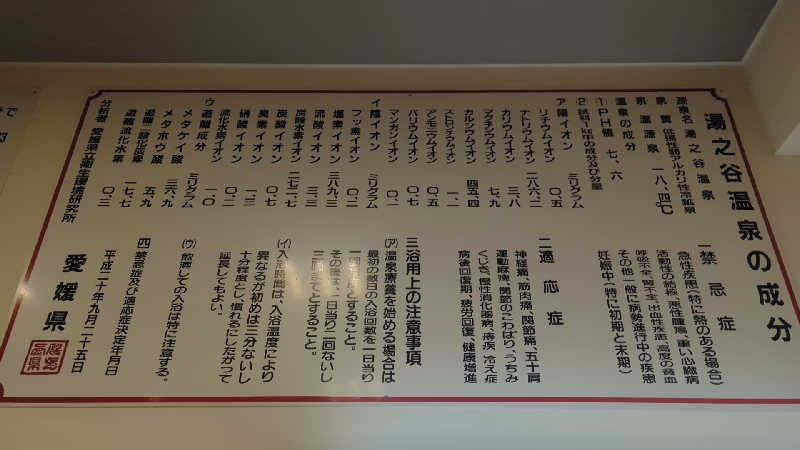 湯之谷温泉の成分
源泉名 湯之谷温泉
泉質 低張性弱アルカリ性冷鉱泉
泉温源泉 一八、四℃
温泉の成分
①PH値 七、六
②試料1kg中の成分及び分量
ア陽イオン ミリグラム
リチウムイオン 〇.五
ナトリウムイオン 二八六.二
カリウムイオン 三.八
マグネシウムイオン 七.九
カルシウムイオン 四五.四
ストロンチウムイオン 一.一
アンモニウムイオン 〇.五
バリウムイオン 〇.七
マンガンイオン 〇.一
イ陰イオン ミリグラム
フッ素イオン 一.〇
塩素イオン 三八九.三
硫酸イオン 三.三
炭酸水素イオン 二七二.七
炭酸イオン 〇.七
臭素イオン 一.三
硝酸イオン 〇.二
流化水素イオン 一.〇
ウ遊離成分 ミリグラム
メタケイ酸 三六.九
メタホウ酸 五.九
遊離二酸化炭素 一七.七
遊離流化水素 〇.三
分析者 愛媛県立衛生環境研究所
一禁忌症
急性疾患(特に熱のある場合)
活動性の結核、悪性腫瘍、重い心臓病
呼吸不全、腎不全、出血性疾患、高度の貧血
その他一般に病勢進行中の疾患
妊娠中(特に初期と末期)
二適応症
神経痛、筋肉痛、関節痛、五十肩
運動麻痺、関節のこわばり、うちみ
くじき、慢性消化器病、痔疾、冷え症
病後回復期、疲労回復、健康増進
三浴用上の注意事項
(ア)温泉療養を始める場合は
最初の数日の入浴回数を、一日当り
一回ほどとすること。
その後は、一日当り二回ないし
三回までとすること。
(イ)入浴時間は、入浴温度により
異なるが初めは三分ないし
十分程度とし、慣れるにしたがって
延長してもよい。
(ウ)飲酒しての入浴は特に注意する。
四禁忌症及び適応症決定年月日
平成二十年九月二十五日
愛媛県